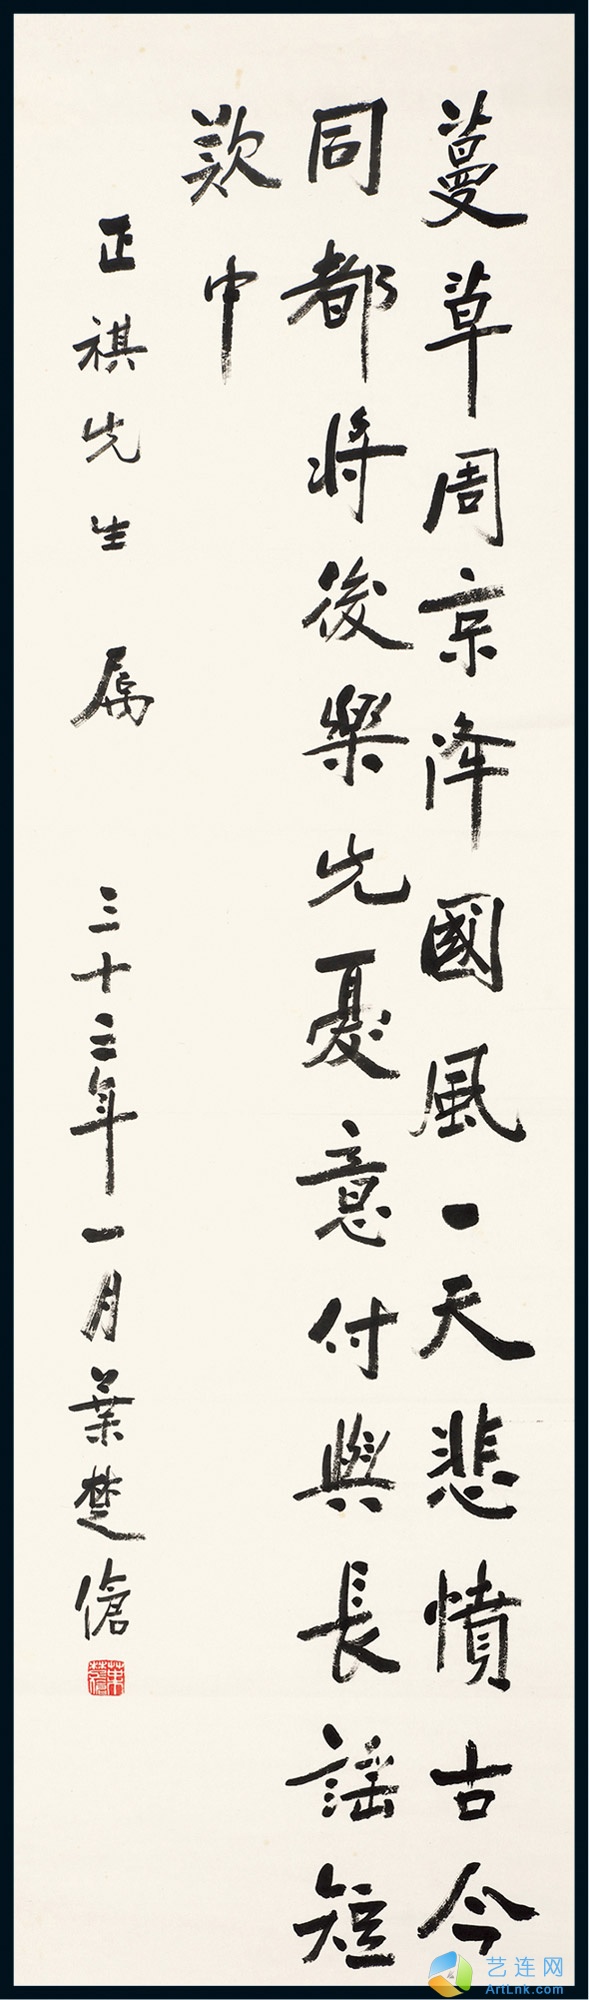 蔓草周京降國風一天悲憤古今
同都將後樂先憂意付與長謡短
歎中
正祺先生 属
三十三年一月葉楚傖
艺连网
ArtLnk.com